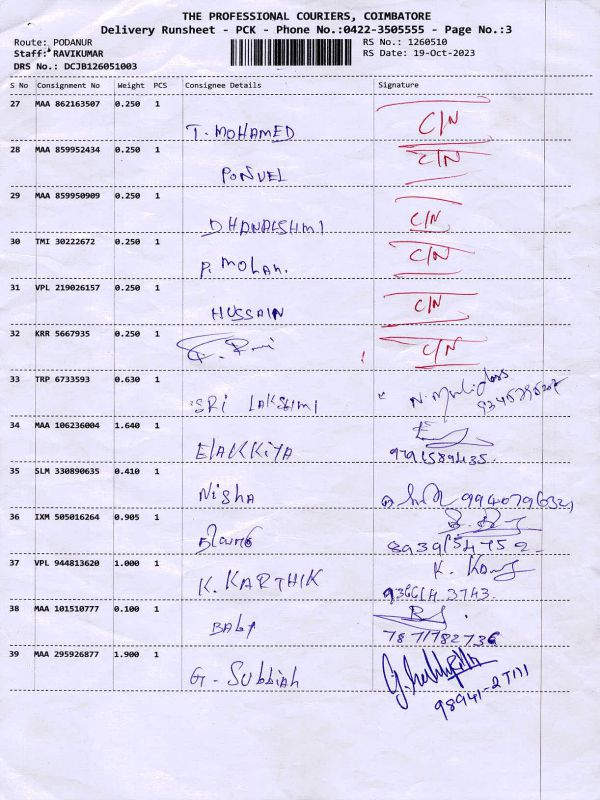 THE PROFESSIONAL COURIERS, COIMBATORE
Delivery Runsheet - PCK - Phone No.:0422-3505555 - Page No.:3
Route: PODANUR RS No.: 1260510
Staff: RAVIKUMAR RS Date: 19-Oct-2023
DRS No.: DCJB126051003
S No Consignment No Weight PCS Consignee Details Signature
27 MAA 862163507 0.250 1
T. MOHAMED C/N
28 MAA 859952434 0.250 1 C/N
PONVEL
29 MAA 859950909 0.250 1
DHANALSHMI C/N
30 TMI 30222672 0.250 1 C/N
P. MOHAN.
31 VPL 219026157 0.250 1 C/N
HUSSAIN
32 KRR 5667935 0.250 1
C/N
33 TRP 6733593 0.630 1
SRI LAKSHMI
34 MAA 106236004 1.640 1
ELAKKIYA
35 SLM 330890635 0.410 1
Nisha
36 IXM 505016264 0.905 1
8939154752
37 VPL 944813620 1.000 1
K. KARTHIK
38 MAA 101510777 0.100 1
BABY 7871782736
39 MAA 295926877 1.900 1
G. Subbiah